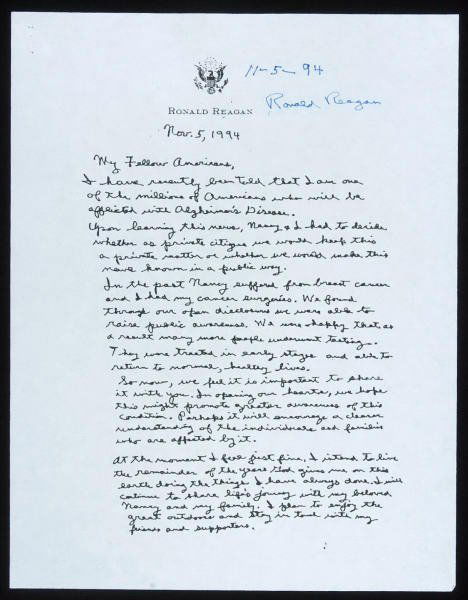 11-5-94
Ronald Reagan
RONALD REAGAN
Nov. 5, 1994
My Fellow Americans,
I have recently been told that I am one
of the millions of Americans who will be
afflicted with Alzheimer's Disease.
Upon learning this news, Nancy & I had to decide
whether as private citizens we would keep this
a private matter or whether we would make this
news known in a public way.
In the past Nancy suffered from breast cancer
and I had my cancer surgeries. We found
through our open disclosures we were able to
raise public awareness. We were happy that as
a result many more people underwent testing.
They were treated in early stages and able to
return to normal, healthy lives.
So now, we feel it is important to share
it with you. In opening our hearts, we hope
this might promote greater awareness of this
condition. Perhaps it will encourage a clearer
understanding of the individuals and families
who are affected by it.
At the moment I feel just fine. I intend to live
the remainder of the years God gives me on this
earth doing the things I have always done. I will
continue to share life's journey with my beloved
Nancy and my family. I plan to enjoy the
great outdoors and stay in touch with my
friends and supporters.